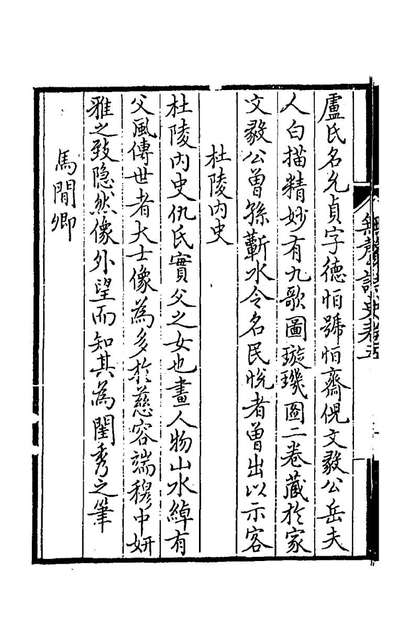 盧氏名允貞字德怡號怡齋倪文毅公岳夫
人白描精妙有九歌圖璇璣圖二卷藏於家
文毅公曾孫蘄水令名民悅者曽出以示客
杜陵內史
杜陵內史仇氏實父之女也畫人物山水綽有
父風傳世者大士像為多於慈容端穆中妍
雅之致隐然像外望而知其為閨秀之筆
馬閒卿